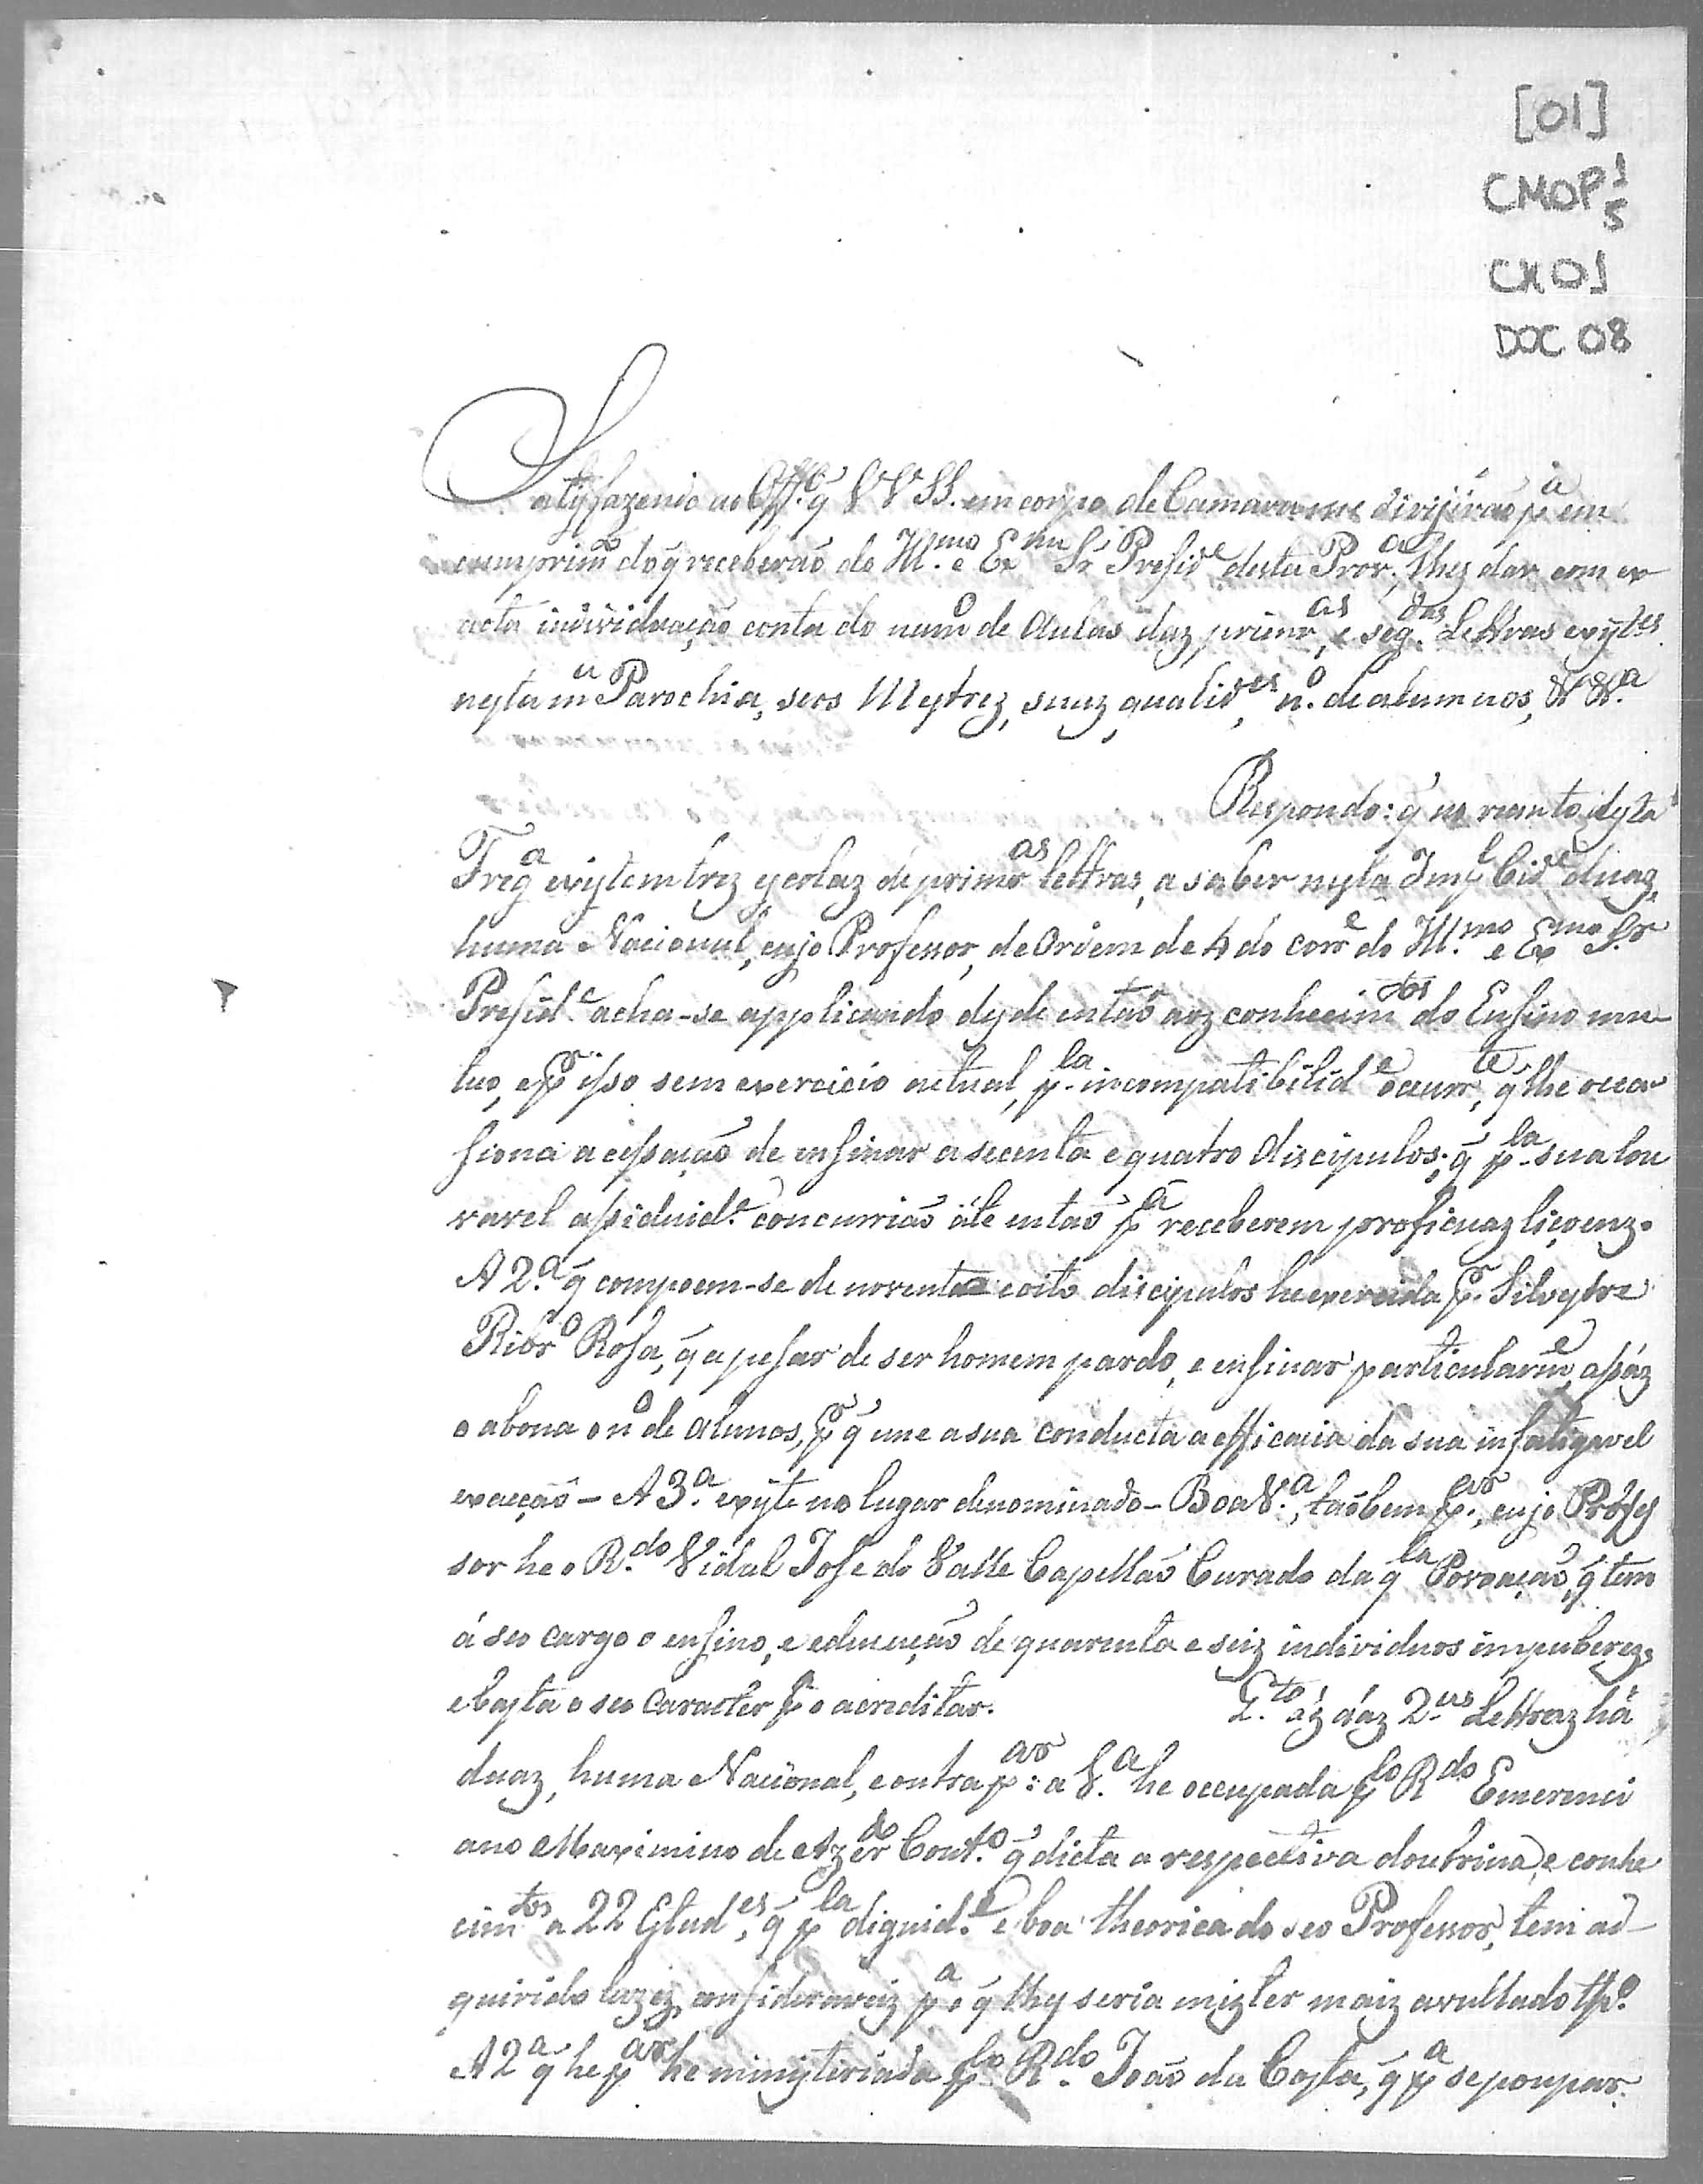 [01]
CMOP 1
5
CX 01
DOC 08
Satysfazendo ao Offº. q̃ VV SS. em corpo de Camara me dirijirão pª. em
cumprimto do q̃ receberão do Illmo. e Exmo Sr. Preside. desta Prova., lhes dar com ex
acta individuação conta do numº de Aulas daz primras, e segdas. Lettras exystes.
nesta mª Parochia, seos Mestrez, suaz qualides, nº. de alumnos, & &ª.
Respondo: q̃ no recinto desta
Fregª existem trez escolaz de primras lettras, a saber nesta Impl Cide duaz,
huma Nacional, cujo Professor, de Ordem de 4 do corre do Illmo. e Exmo Sor
Preside. acha-se applicando desde então aoz conhecimtos do Ensino mu-
tuo, e pr isso sem exercicio actual, pla. incompatibilide occurrte, q̃ lhe occa
siona a cessação de ensinar a secenta e quatro Discipulos; q̃ pla. sua lou
vavel assiduide. concurrião áte então pª receberem proficuaz liçoenz.
A 2ª. q̃ compoem-se de noventa e oito discipulos he exercida pr. Silvestre
Ribrº Rosa, q̃ apesar de ser homem pardo, e ensinar particularme, assáz
o abona o nº de alunos, pr q̃ une a sua conducta a efficacia da sua infatigavel
exacção - A 3ª. existe no lugar denominado - Boa Vª., taõbem par., cujo Profes
sor he o Rdo. Vidal Jose do Valle Capellão Curado daqla Povoação, q̃ tem
á seo cargo o ensino, e educação de quarenta e seiz individuos impuberez,
e basta o seo Caracter pª o acreditar. Qto. áz dáz 2as. Lettraz há
duaz, huma Nacional, e outra par: a 1ª. he occupada plo Rdo Emerenci
ano Maximino de Azerdo Coutº. q̃ dicta a respectiva doutrina, e conhe
cimtos a 22 Estudes, q̃ pla dignide. e boa theorica do seo Professor, tem ad-
quirido luzez consideraveiz pª o q̃ lhes seria mizter maiz avultado tpº.
A 2ª q̃ he par he ministeriada plo Rdo. João da Costa, q̃ pª se poupar